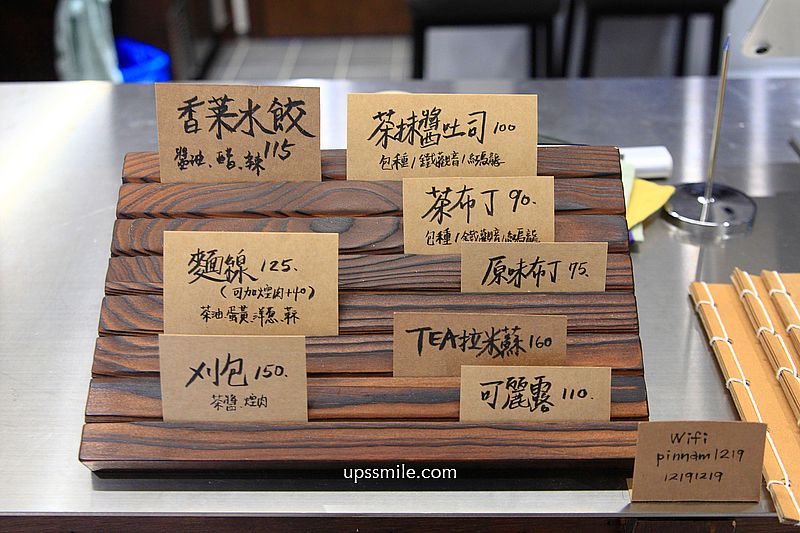 香菜水餃
醬油、醋、辣 115
茶抹醬吐司 100
包種/鐵觀音/紅烏龍
茶布丁 90.
包種/鐵觀音/紅烏龍
麵線 125.
(可加焢肉+40)
茶油.蛋黃.洋蔥.蒜
原味布丁 75.
TEA拉米蘇 160
刈包 150.
茶醬.焢肉
可麗露 110.
Wifi
pinnam1219
12191219
upssmile.com